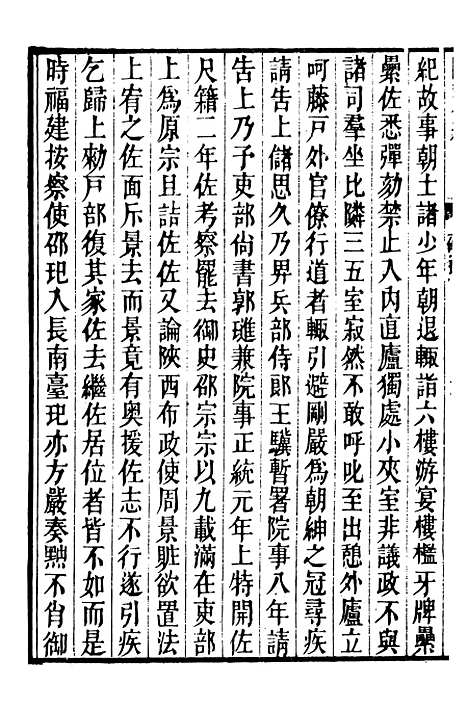 紀故事朝士諸少年朝退輒詣六樓游宴樓檻牙牌纍
纍佐悉彈劾禁止入內直廬獨處小夾室非議政不與
諸司羣坐比隣三五室寂然不敢呼叱至出憩外廬立
呵藤戸外官僚行道者輒引避剛嚴爲朝紳之冠尋疾
請告上儲思久乃畀兵部侍郎王驥暫署院事八年請
告上乃予吏部尙書郭璡兼院事正統元年上特開佐
尺籍二年佐考察罷去御史邵宗宗以九載滿在吏部
上爲原宗且詰佐佐又論陝西布政使周景賍欲置法
上宥之佐面斥景去而景竟有奥援佐志不行遂引疾
乞歸上勑戸部復其家佐去繼佐居位者皆不如而是
時福建按察使邵玘入長南臺玘亦方嚴奏黜不肖御